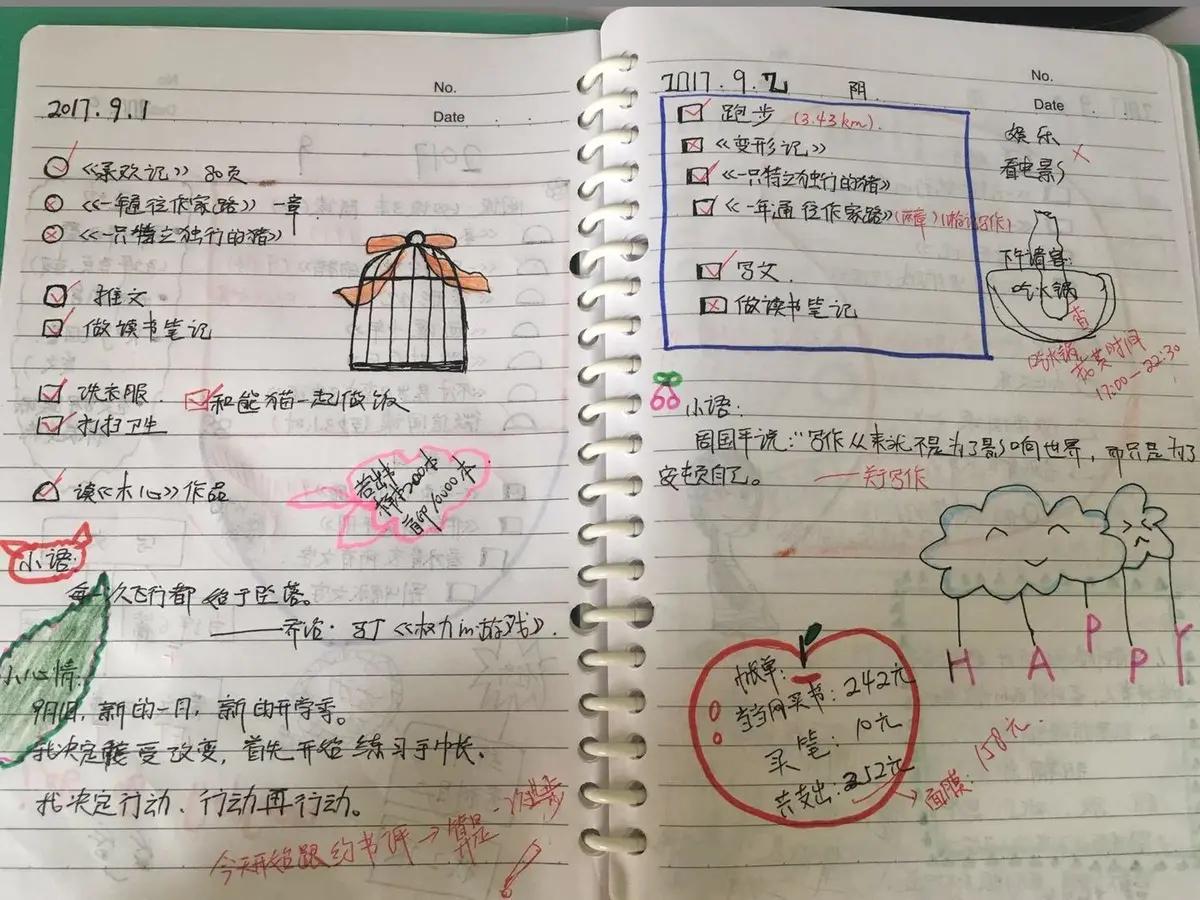 No.
Date
2017.9.1
《承欢记》80页
《一年通往作家路》一章.
《一只特立独行的猪》
推文
做读书笔记
洗衣服.
和熊猫一起做饭
扫扫卫生
读《木心》作品
若出书
样书2000本
首印10000本
小语:
每一次飞行都始于坠落。
——乔治·马丁《权力的游戏》.
小心情:
9月1日,新的一月,新的开学季。
我决定接受改变,首先开始练习手帐.
我决定行动、行动再行动。
今天开始跟约书评→算是一次进步
No.
Date
2017.9.2 阴
跑步 (3.43km).
《变形记》
《一只特立独行的猪》
《一年通往作家路》(两章)
写文.
做读书笔记
娱乐
看电影
下午请客:
吃火锅
吃火锅
花费时间
17:00—22:30
小语:
周国平说:“写作从来就不是为了影响世界,而只是为了
安顿自己。
——关于写作
HAPPY
小帐单:
当当网买书:242元
买笔:10元
共支出:252元
面膜:158元.